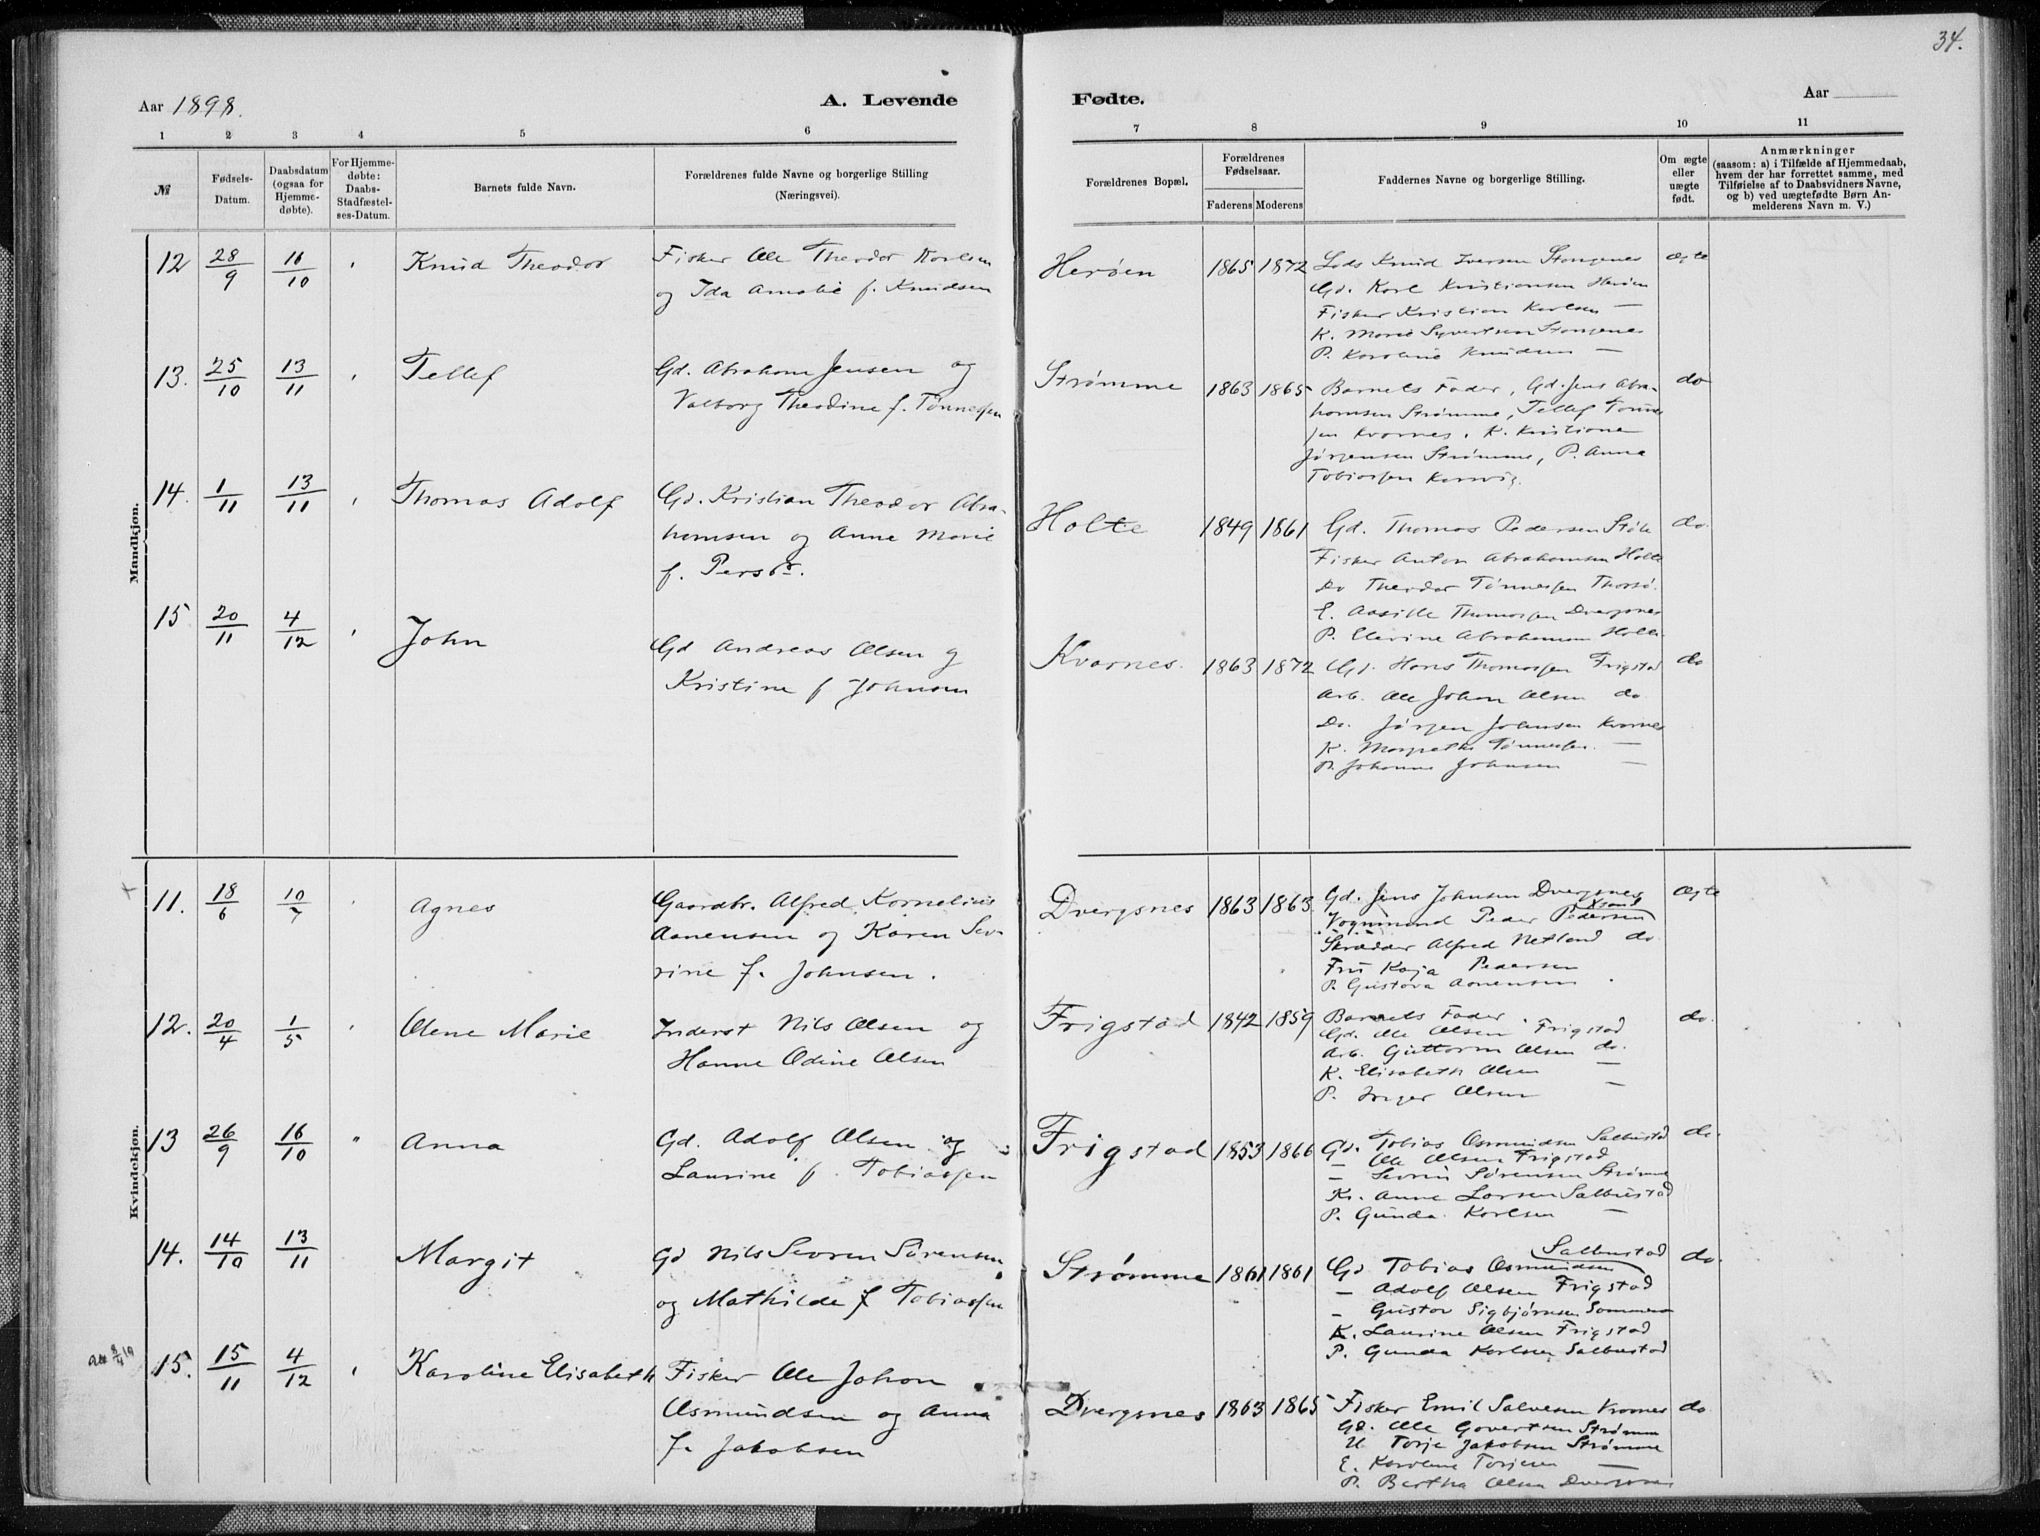 34.
Aar 1898.
A. Levende
Fødte.
Aar
1 2 3 4 5 6 7 8 9 10 11
№
Fødsels-
Datum.
Daabsdatum
(ogsaa for
Hjemme-
døbte).
For Hjemme-
døbte:
Daabs-
Stadfæstel-
ses-Datum.
Barnets fulde Navn.
Forældrenes fulde Navne og borgerlige Stilling
(Næringsvei).
Forældrenes Bopæl.
Forældrenes
Fødselsaar.
Faderens Moderens
Faddernes Navne og borgerlige Stilling.
Om ægte
eller
uægte
født.
Anmærkninger
(saasom: a) i Tilfælde af Hjemmedaab,
hvem der har forrettet samme, med
Tilføielse af to Daabsvidners Navne,
og b) ved uægtefødte Børn An-
melderens Navn m. V.)
Mandkjøn.
12 28/9 16/10 Knud Theodor
Fisker Ole Theodor Karlsen
og Ida Amalie f. Knudsen
Herøen 1865 1872
Lods Knud Iversen Stangenes
Gd. Karl Kristiansen Herøen
Fisker Kristian Karlsen —
K. Marie Syvertsen Stangenes
P. Karoline Knudsen —
Ægte
13. 25/10 13/11 Tellef
Gd. Abraham Jensen og
Valborg Theodine f. Tønnessen
Strømme 1863 1865
Barnets Fader, Gd. Jens Abra-
hamsen Strømme, Tellef Tønnes
sen Kvarnes, K. Kristiane
Jørgensen Strømme, P. Anna
Tobiassen
do
14. 1/11 13/11 Thomas Adolf
Gd. Kristian Theodor Abra-
hamsen og Anne Marie
f. Persdr.
Holte 1849 1861
Gd. Thomas Pedersen Støle
Fisker Anton Abrahamsen Holte
Do Theodor Tønnessen Thorsø.
E. Aasille Thomassen Dvergsnes
P. Elevine Abrahamsen Holte
do.
15 20/11 4/12 John
Gd Andreas Olsen og
Kristine f Johnsen
Kvarnes. 1863 1872
Gd. Hans Thomassen Frigstad
Arb. Ole Johan Olsen do
Do. Jørgen Johnsen Kvarnes
K. Margrethe Tønnessen. —
P. Johanne Johnsen —
do
Kvindekjøn.
11. 18/6 10/7 Agnes
Gaardbr. Alfred Kornelius
Aanensen og Karen Sev-
rine f. Johnsen.
Dvergsnes 1863 1863
Gd. Jens Johnsen Dvergsnes
Vognmand Peder Pedersen Krsand
Skrædder Alfred Netland do
Fru Kaja Pedersen
P. Gustava Aanensen
Ægte
12. 20/4 1/5 Olene Marie
Inderst Nils Olsen og
Hanne Odine Olsen
Frigstad 1842 1859
Barnets Fader.
Gd. Ole Olsen Frigstad
Arb. Guttorm Olsen do.
K. Elisabeth Olsen —
P. Inger Olsen —
do.
13 26/9 16/10 " Anna
Gd. Adolf Olsen og
Laurine f Tobiassen
Frigstad 1853 1866
Gd. Tobias Osmundsen Salbustad
— Ole Olsen Frigstad
— Sevrin Sørensen Strømme
K. Anne Larsen Salbustad
P. Gunda Karlsen —
do.
14. 14/10 13/11 Margit
Gd Nils Sevren Sørensen
og Mathilde f Tobiassen
Strømme 1861 1861
Gd Tobias Osmundsen Salbustad
— Adolf Olsen Frigstad
— Gustav Sigbjørnsen
K. Laurine Olsen Frigstad
P. Gunda Karlsen Salbustad
do.
15. 15/11 4/12 Karoline Elisabeth
Fisker Ole Johan
Osmundsen og Anna
f. Jakobsen
Dvergsnes 1863 1865
Fisker Emil Salvesen Kvarnes
Gd. Ole Govertsen Strømme
U Torje Jakobsen Strømme
E. Karoline Torjesen —
P. Bertha Olsen Dvergsnes
do.